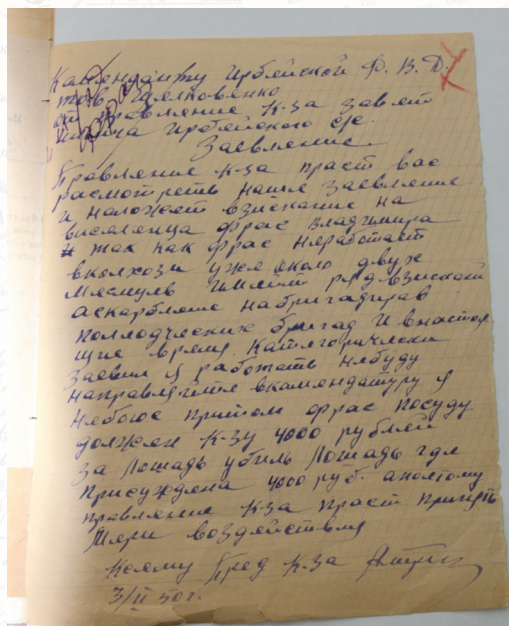 Каменданту Ирбейской Ф. В. Д.
тов Шелковенко
от правление К-за завет
Ирбейского с/с.
Заевление.
Правление К-за праст вас
расмотреть наше заевление
и наложеть взискание на
виселенца Фрас Владимира
так как Фрас неработает
вколхози уже около двух
месяцев имеит ряд взисканий
аскарбление набригадирав
поллодческих бригад и внастоя
щие время категорически
заевил я работать небуду
направляйте вкамендатуру я
небоюс притом Фрас посуду
должен К-зу 4000 рублей
за лошадь убиль лошадь где
присуждена 4000 руб. апоэтому
правление К-за праст принять
мери воздействия
Пред К-за
3/II 50 г.